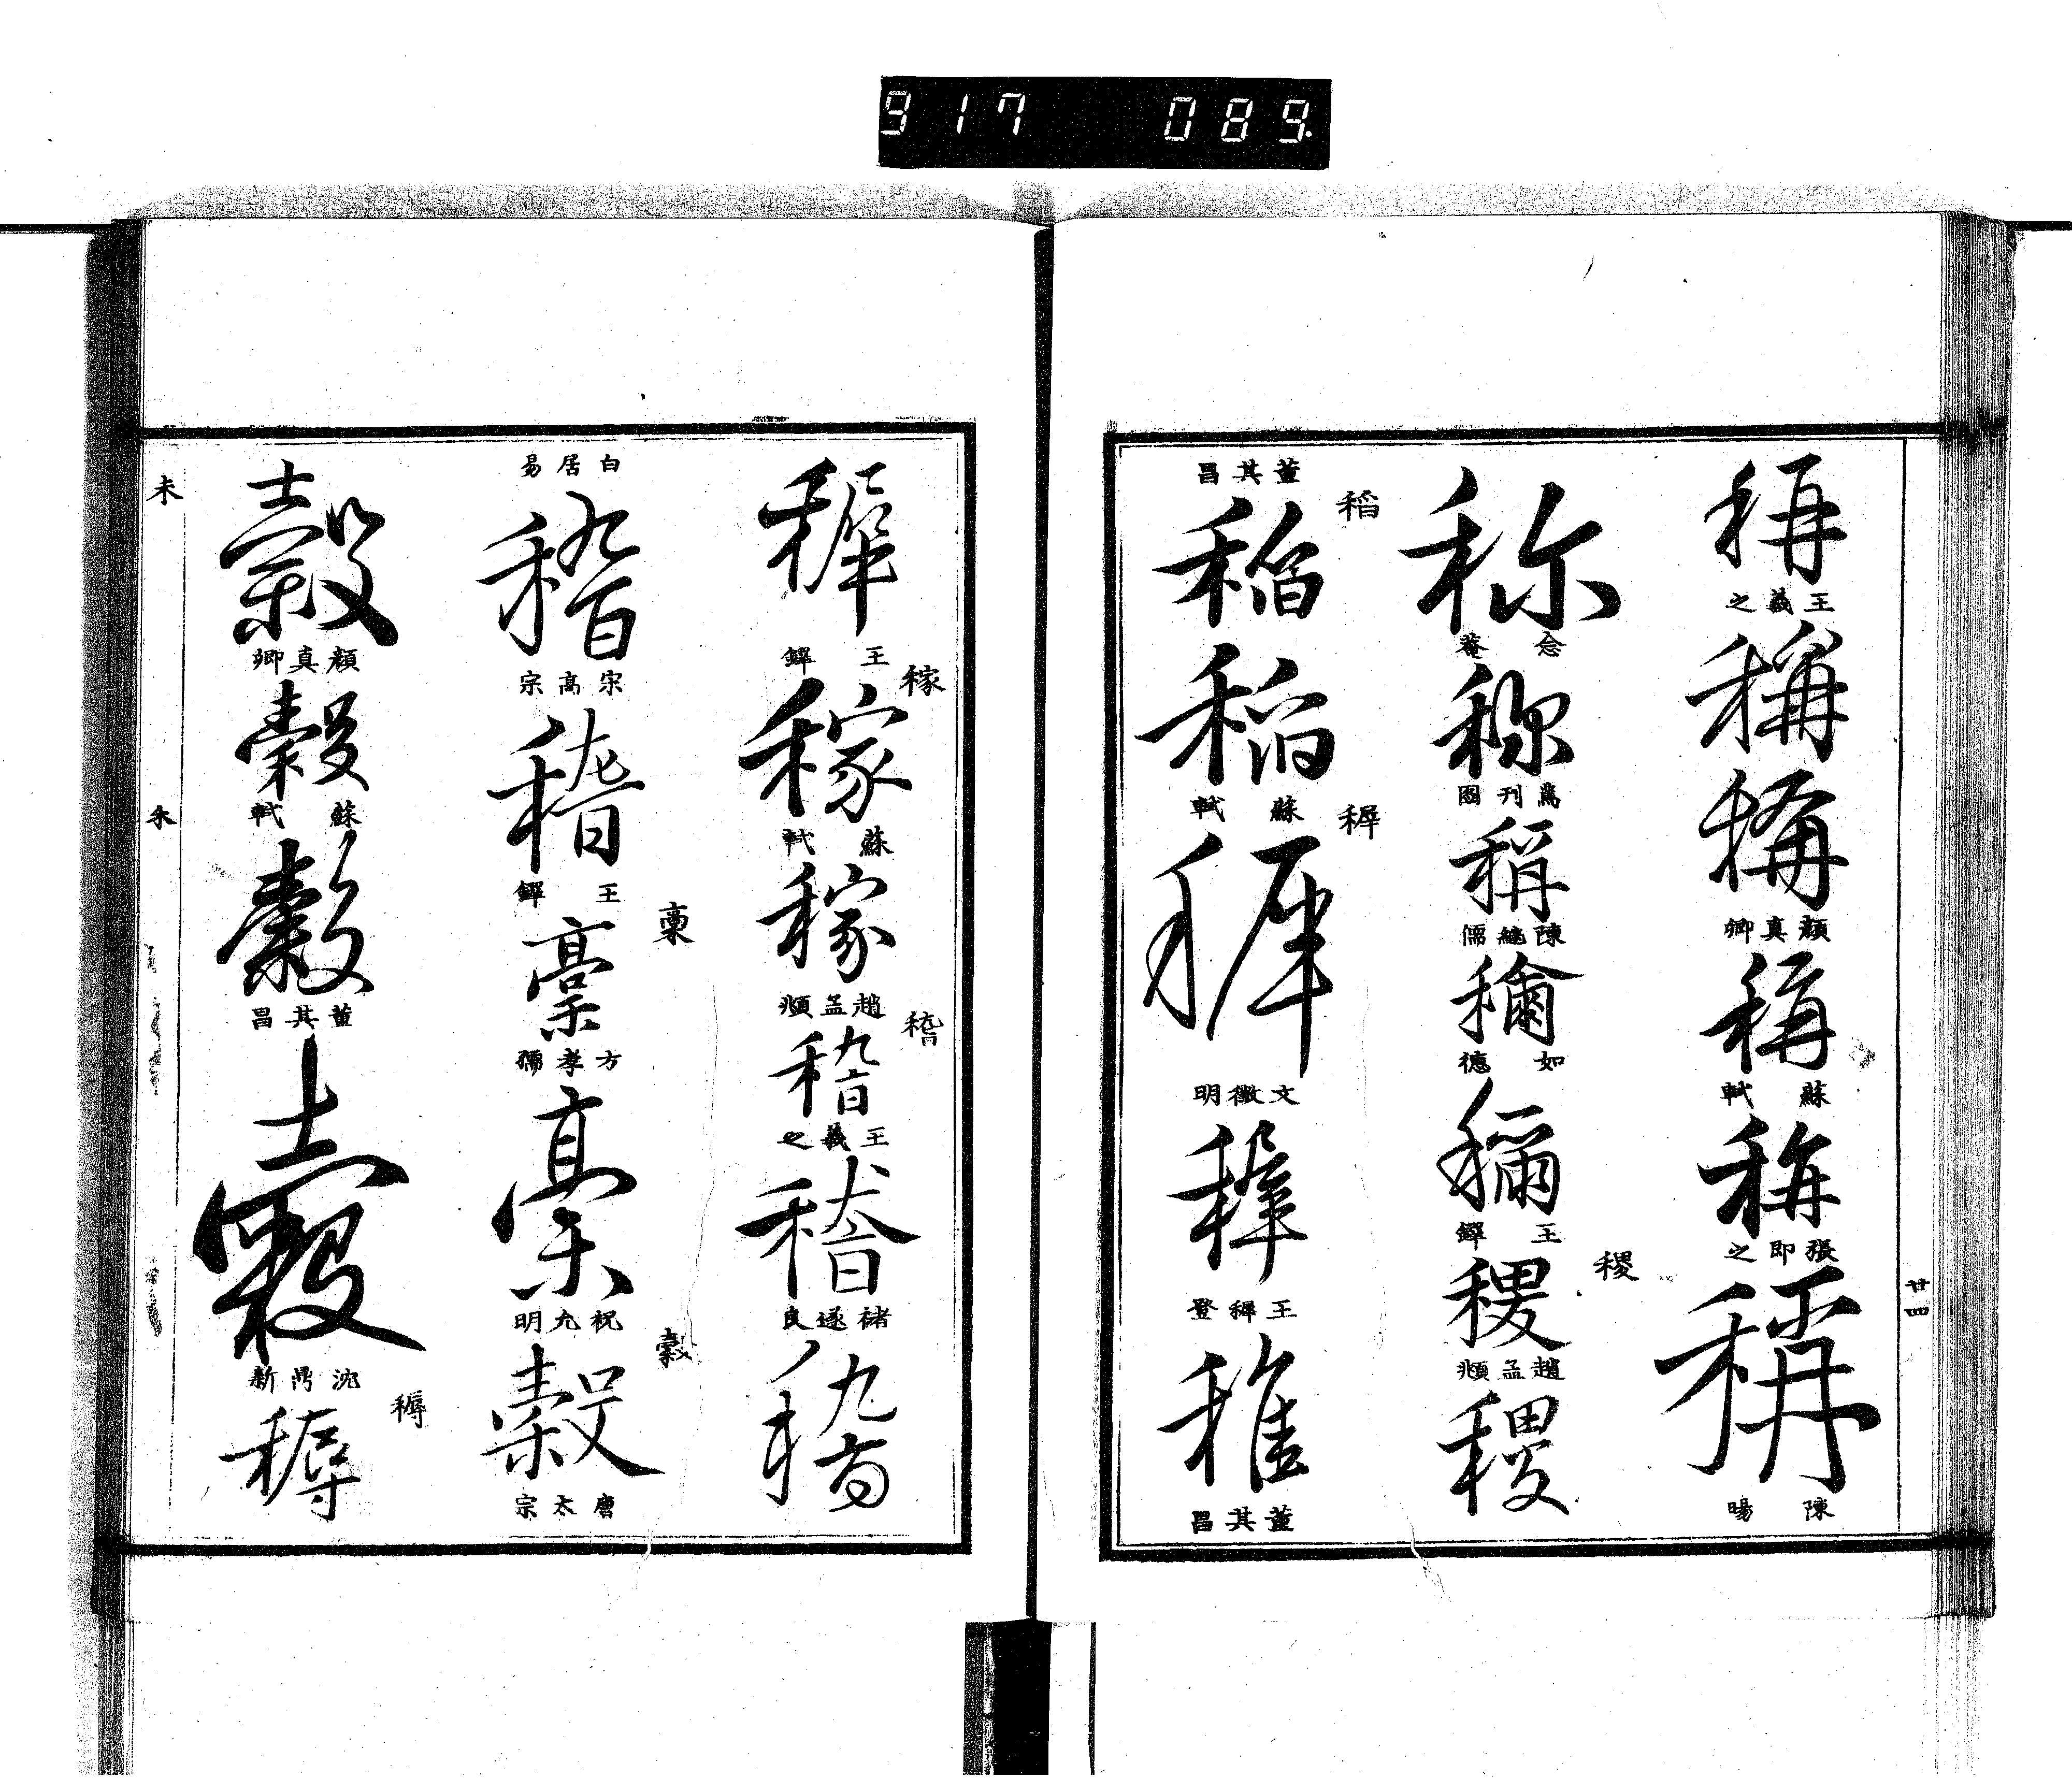 917 089
稱
王羲之
稱
稱
顔真卿
稱
蘇軾
稱
張即之
稱
陳暘
廿四
称
念菴
称
萬刊國
稱
陳繼儒
穪
如德
穪
王鐸
稷
稷
趙孟頫
稷
稻
董其昌
稻
稻
蘇軾
穉
穉
文徵明
穉
王穉登
稚
董其昌
穉
王鐸
稼
稼
蘇軾
稼
趙孟頫
稽
稽
王羲之
稽
褚遂良
稽
白居易
稽
宋高宗
稽
王鐸
稾
稾
方孝孺
稾
祝允明
穀
穀
唐太宗
穀
顔真卿
穀
蘇軾
穀
董其昌
穀
沈鼎新
耨
耨
未